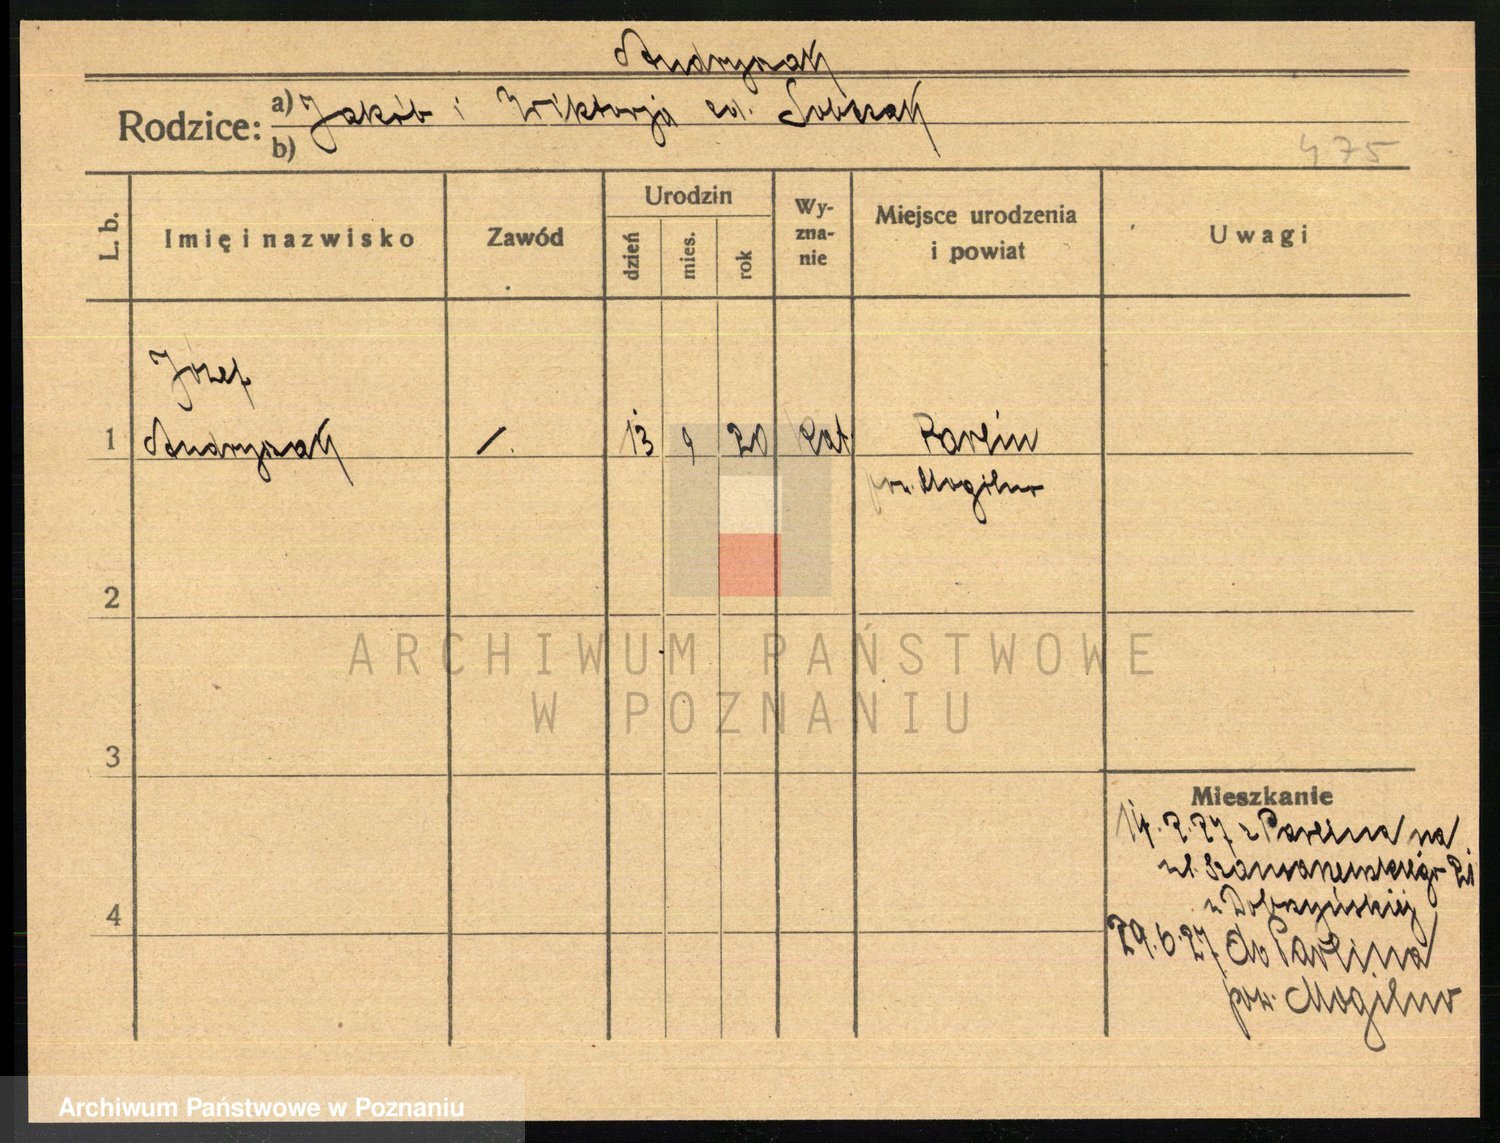 Andrysiak
Rodzice: a) Jakób i Wiktorja zd. Sobczak
b)
475
L. b. Imię i nazwisko Zawód Urodzin dzień mies. rok Wy-zna-nie Miejsce urodzenia i powiat Uwagi
Józef
1 Andrysiak /. 13 9 20 kat Parlin
pow. Mogilno
2
ARCHIWUM PAŃSTWOWE
W POZNANIU
3
Mieszkanie
14.2.27 z Parlina na
21
4 u Dobrzyńskiej
29.6.27 do Parlina
pow. Mogilno
Archiwum Państwowe w Poznaniu